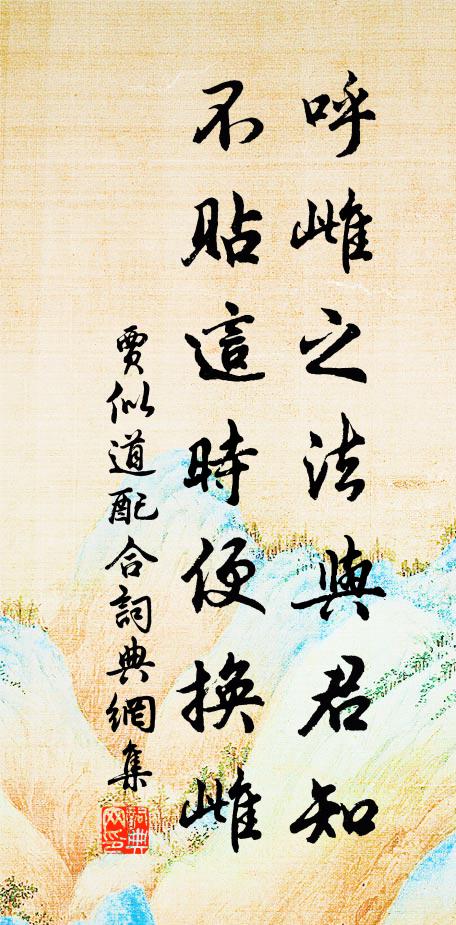 呼雌之法與君知
不貼這時便換雌
賈似道配合詞典網集
詞典網印